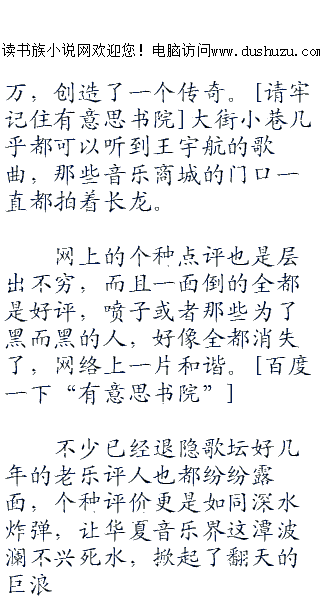 读书族小说网欢迎您！电脑访问www.dushuzu.com
万，创造了一个传奇。[请牢
记住有意思书院]大街小巷几
乎都可以听到王宇航的歌
曲，那些音乐商城的门口一
直都拍着长龙。
网上的个种点评也是层
出不穷，而且一面倒的全都
是好评，喷子或者那些为了
黑而黑的人，好像全都消失
了，网络上一片和谐。[百度
一下“有意思书院”]
不少已经退隐歌坛好几
年的老乐评人也都纷纷露
面，个种评价更是如同深水
炸弹，让华夏音乐界这潭波
澜不兴死水，掀起了翻天的
巨浪